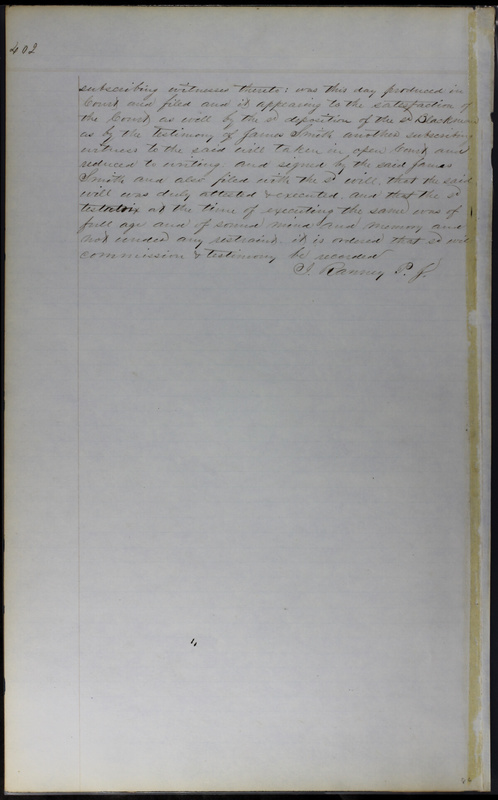 402
subscribing witnesses thereto: was this day produced in
Court and filed and it appearing to the satisfaction of
the Court as well by the sd deposition of the sd Blackman
as by the testimony of James Smith another subscribing
witness to the said will taken in open Court and
reduced to writing and signed by the said James
Smith and also filed with the sd will, that the said
will was duly attested & executed, and that the sd
testatrix at the time of executing the same was of
full age and of sound mind and memory and
not under any restraint, it is ordered that sd will
commission & testimony be recorded
Ranney P. J.